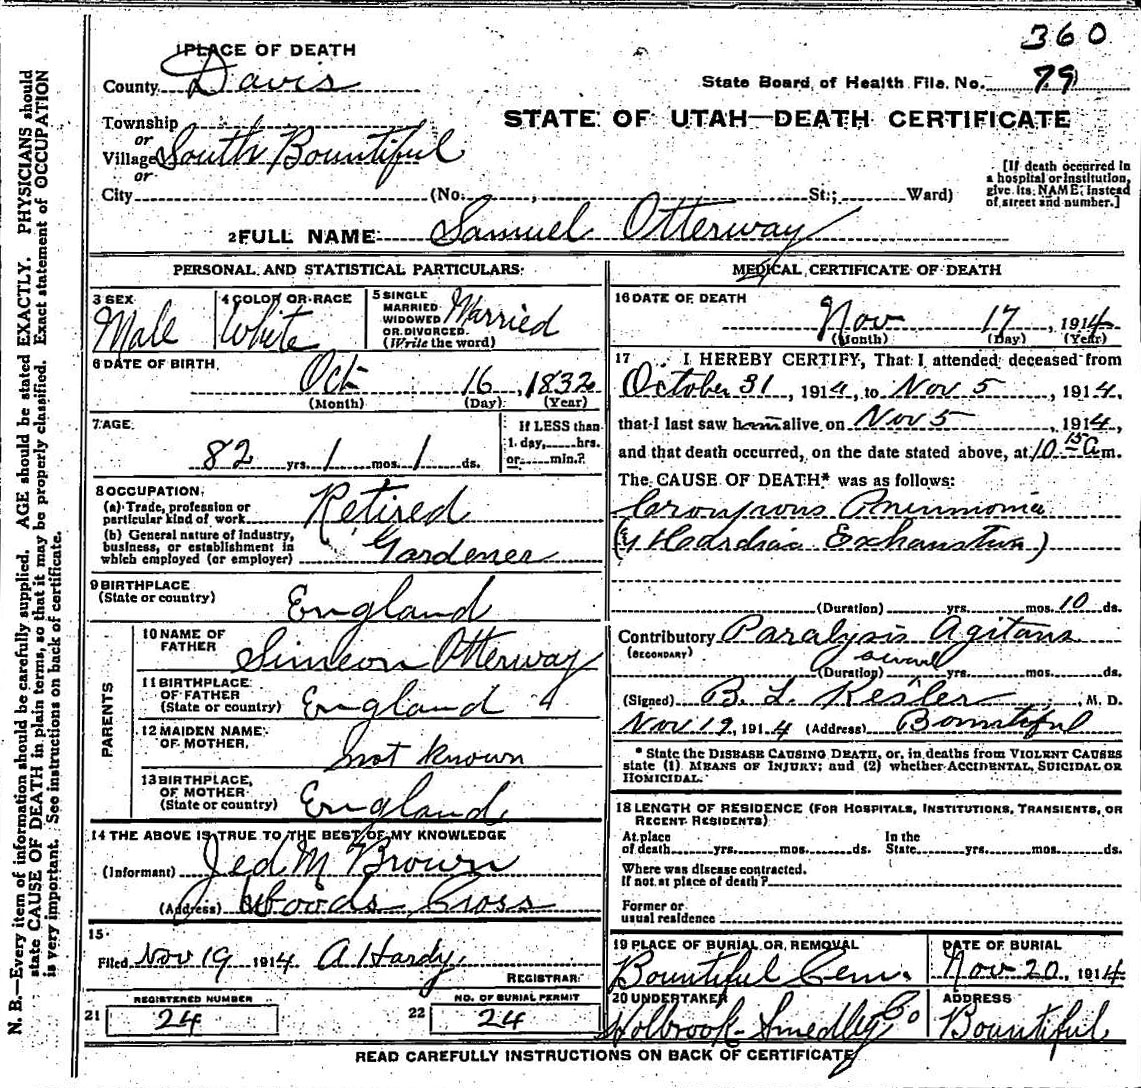 360
1 PLACE OF DEATH
County Davis
State Board of Health File No. 79
STATE OF UTAH—DEATH CERTIFICATE
Township
or
Village South Bountiful
or
City (No. , St.; Ward)
[If death occurred in
a hospital or institution,
give its NAME instead
of street and number.]
2 FULL NAME Samuel Otterway
PERSONAL AND STATISTICAL PARTICULARS
3 SEX
Male
4 COLOR OR RACE
White
5 SINGLE
MARRIED
WIDOWED
OR DIVORCED.
(Write the word)
Married
6 DATE OF BIRTH
Oct 16, 1832
(Month) (Day) (Year)
7 AGE
82 yrs. 1 mos. 1 ds.
If LESS than
1 day, hrs.
or min.?
8 OCCUPATION
(a) Trade, profession or
particular kind of work Retired
(b) General nature of industry,
business, or establishment in
which employed (or employer) Gardener
9 BIRTHPLACE
(State or country) England
PARENTS
10 NAME OF
FATHER Simeon Otterway
11 BIRTHPLACE
OF FATHER
(State or country) England
12 MAIDEN NAME
OF MOTHER not known
13 BIRTHPLACE
OF MOTHER
(State or country) England
14 THE ABOVE IS TRUE TO THE BEST OF MY KNOWLEDGE
(Informant) Jed M Brown
(Address) Woods Cross
15
Filed Nov 19 1914 A Hardy
REGISTRAR
REGISTERED NUMBER
21 24
NO. OF BURIAL PERMIT
22 24
MEDICAL CERTIFICATE OF DEATH
16 DATE OF DEATH
Nov 17, 1914
(Month) (Day) (Year)
17 I HEREBY CERTIFY, That I attended deceased from
October 31, 1914, to Nov 5, 1914,
that I last saw him alive on Nov 5, 1914,
and that death occurred, on the date stated above, at 10 15 a m.
The CAUSE OF DEATH* was as follows:
Croupous Pneumonia
(& Cardiac Exhaustion)
(Duration) yrs. mos. 10 ds.
Contributory Paralysis Agitans
(SECONDARY)
(Duration) yrs. mos. ds.
(Signed) B. L. Kesler, M. D.
Nov 19, 1914 (Address) Bountiful
* State the DISEASE CAUSING DEATH, or, in deaths from VIOLENT CAUSES
state (1) MEANS OF INJURY; and (2) whether ACCIDENTAL, SUICIDAL OR
HOMICIDAL.
18 LENGTH OF RESIDENCE (FOR HOSPITALS, INSTITUTIONS, TRANSIENTS, OR
RECENT RESIDENTS)
At place
of death yrs. mos. ds.
In the
State yrs. mos. ds.
Where was disease contracted.
If not at place of death?
Former or
usual residence
19 PLACE OF BURIAL OR REMOVAL
Bountiful Cem.
DATE OF BURIAL
Nov 20, 1914
20 UNDERTAKER
Holbrook-Smedley Co
ADDRESS
Bountiful
READ CAREFULLY INSTRUCTIONS ON BACK OF CERTIFICATE
N. B.—Every item of information should be carefully supplied. AGE should be stated EXACTLY. PHYSICIANS should
state CAUSE OF DEATH in plain terms, so that it may be properly classified. Exact statement of OCCUPATION
is very important. See instructions on back of certificate.